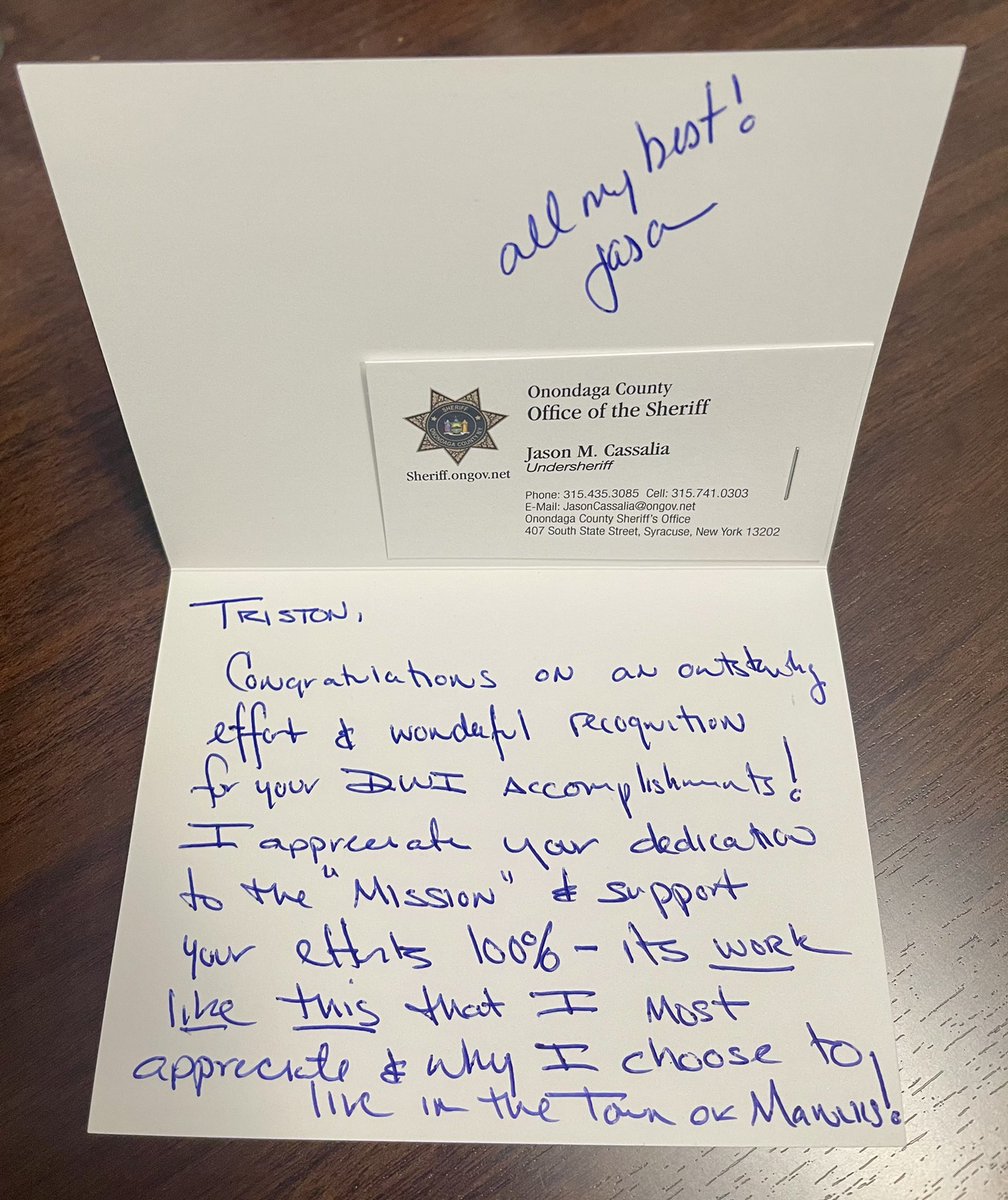 all my best!
Jason
SHERIFF
ONONDAGA COUNTY
Sheriff.ongov.net
Onondaga County
Office of the Sheriff
Jason M. Cassalia
Undersheriff
Phone: 315.435.3085 Cell: 315.741.0303
E-Mail: JasonCassalia@ongov.net
Onondaga County Sheriff's Office
407 South State Street, Syracuse, New York 13202
TRISTON,
Congratulations on an outstanding
effort & wonderful recognition
for your DWI Accomplishments!
I appreciate your dedication
to the "Mission" & support
your efforts 100% - its work
like this that I most
appreciate & why I choose to
live in the Town of Manlius!